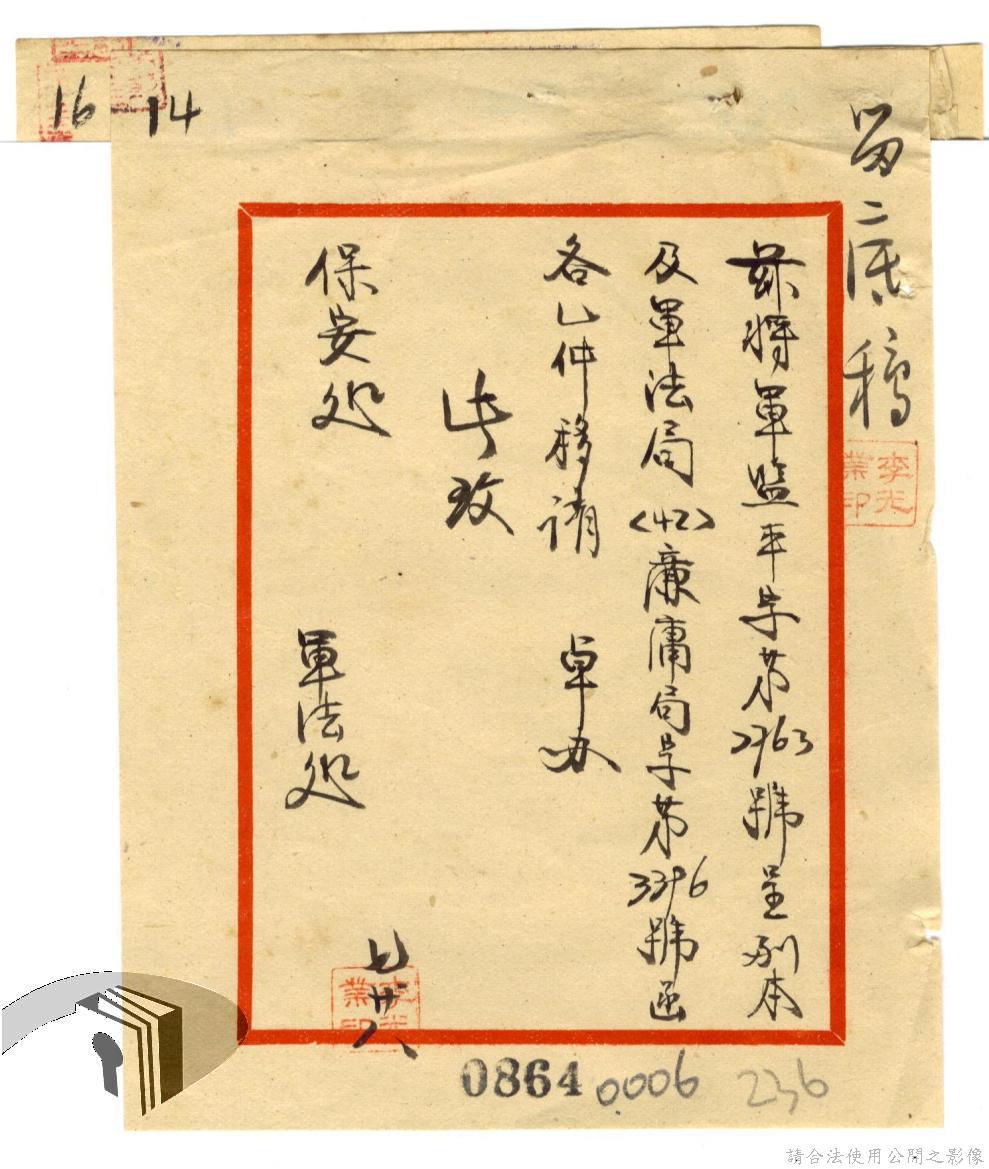 16
14
留底稿
李光業印
茲將軍監平字第2763號呈副本
及軍法局<42>廉庸局字第3396號函
各乙件移請 卓办
此致
保安处
軍法处
七廿八
李光業印
0864
0006
236
請合法使用公開之影像